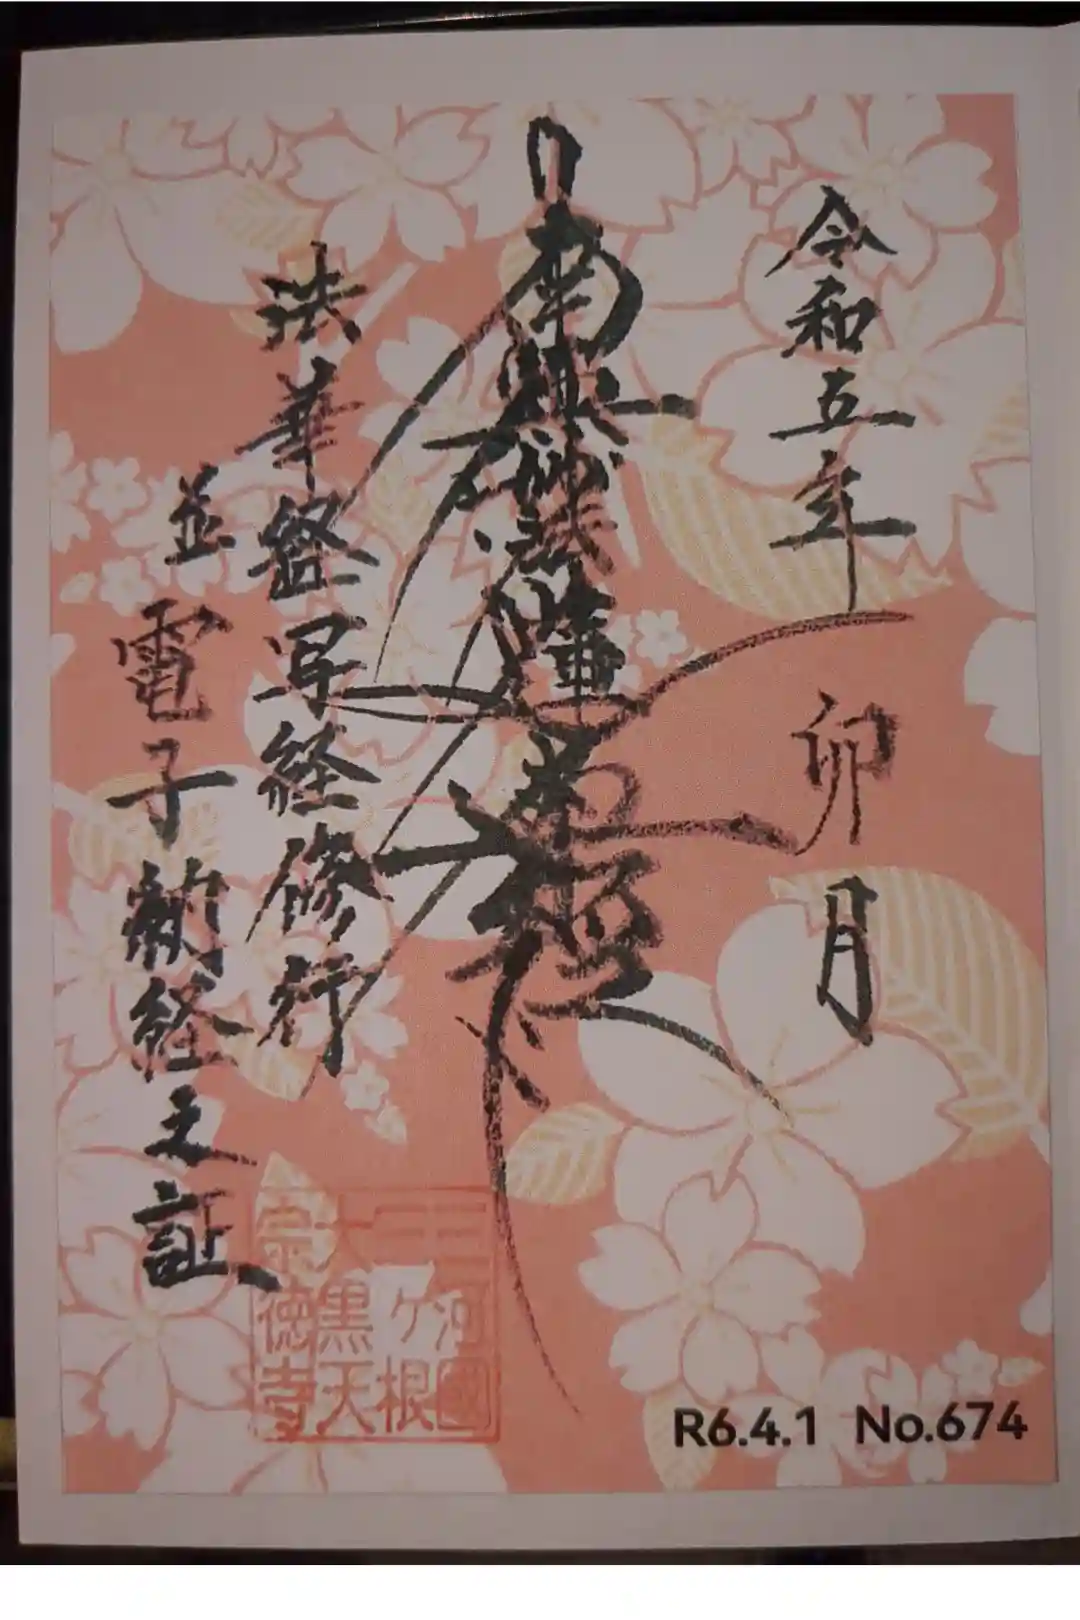 令和五年 卯月
南無妙法蓮華経
法華経写経修行
並電子納経之証
三河國
三ヶ根
大黒天
宗徳寺
R6.4.1 No.674